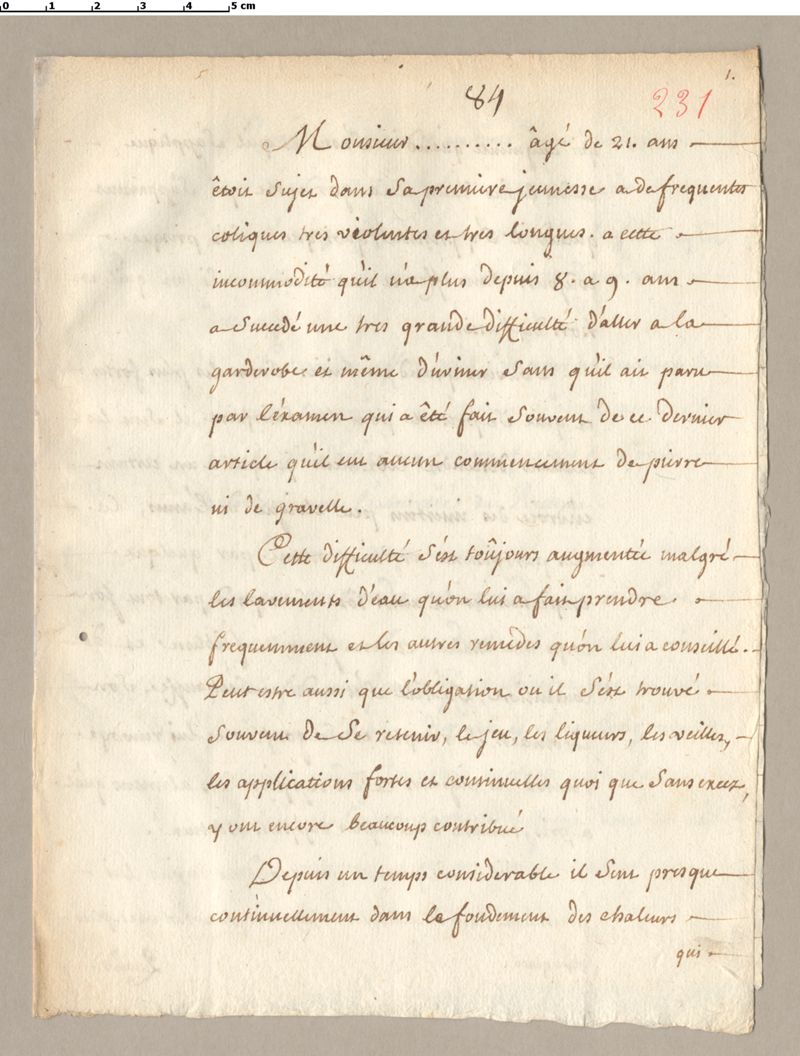 0 1 2 3 4 5 cm
1.
84
231
Monsieur .......... âgé de 21. ans
êtoit sujet dans sa premiere jeunesse a de frequentes
coliques tres violentes et tres longues. a cette
incommodité qu'il n'a plus depuis 8. a 9. ans
a succedé une tres grande difficulté d'aller a la
garderobe et même d'uriner sans qu'il ait paru
par l'éxamen qui a êté fait souvent de ce dernier
article qu'il eut aucun commencement de pierre
ni de gravelle.
Cette difficulté s'ést toûjours augmentée malgré
les lavements d'eau qu'on lui a fait prendre
frequemment et les autres remedes qu'on lui a conseillé.
Peut estre aussi que l'obligation ou il s'ést trouvé
souvent de se retenir, le jeu, les liqueurs, les veilles,
les applications fortes et continuelles quoi que sans excez,
y ont encore beaucoup contribué
Depuis un temps considerable il sent presque
continuellement dans le fondement des chaleurs
qui